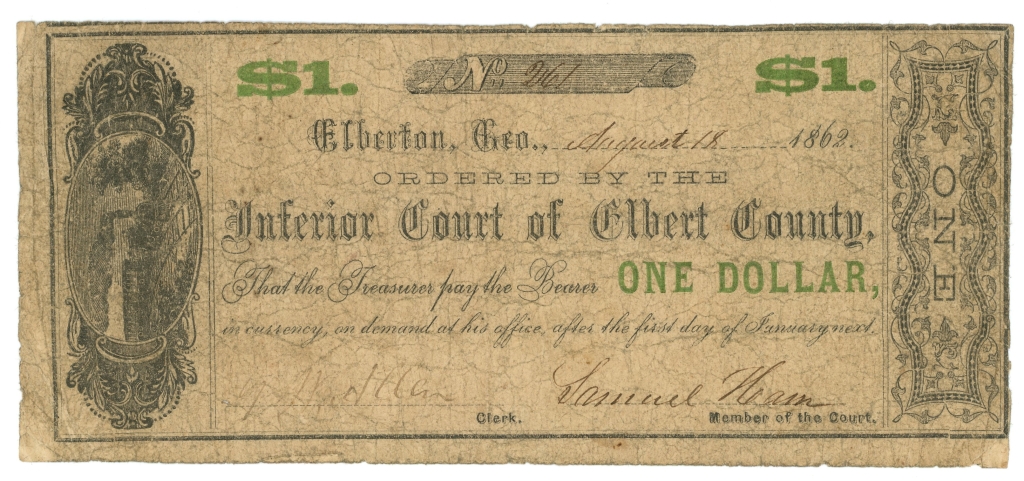 $1. No. 261 $1.
Elberton, Geo., August 18 1862.
ORDERED BY THE
Inferior Court of Elbert County,
That the Treasurer pay the Bearer ONE DOLLAR,
in currency, on demand at his office, after the first day of January next.
Allen Samuel Ham
Clerk. Member of the Court.
ONE